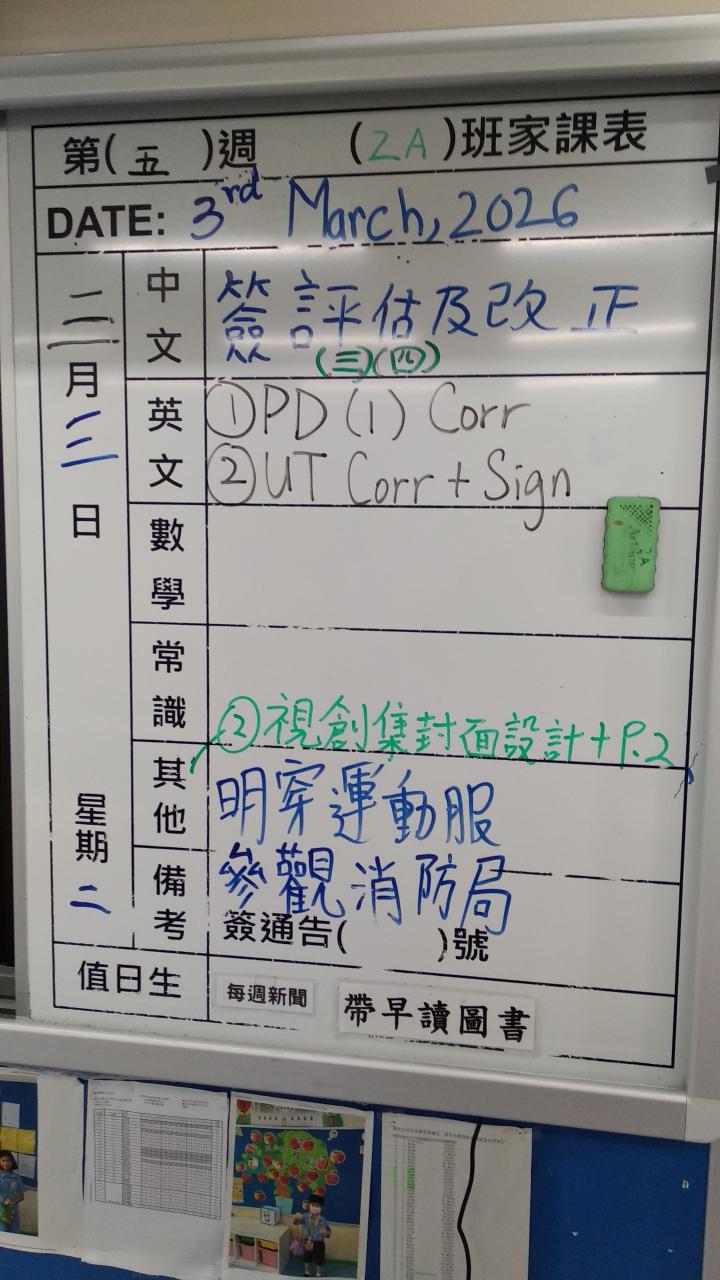 第( 五 )週 (2A)班家課表
DATE: 3rd March, 2026
二月三日
星期二
中文
簽評估及改正
(三)(四)
英文
①PD (1) Corr
②UT Corr + Sign
數學
常識
②視創集封面設計+P.2
其他
明穿運動服
備考
參觀消防局
簽通告( )號
值日生
每週新聞
帶早讀圖書
2A